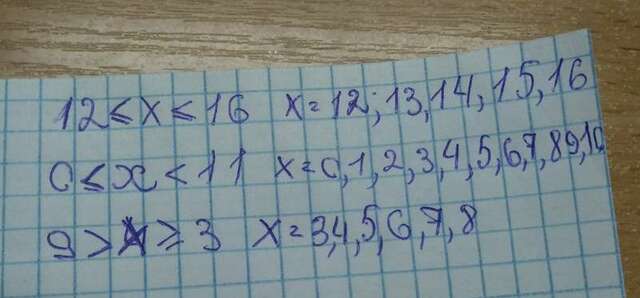 12 ≤ x ≤ 16 x = 12; 13, 14, 15, 16
0 ≤ x < 11 x = 0, 1, 2, 3, 4, 5, 6, 7, 8 9, 10
9 > x ≥ 3 x = 3, 4, 5, 6, 7, 8